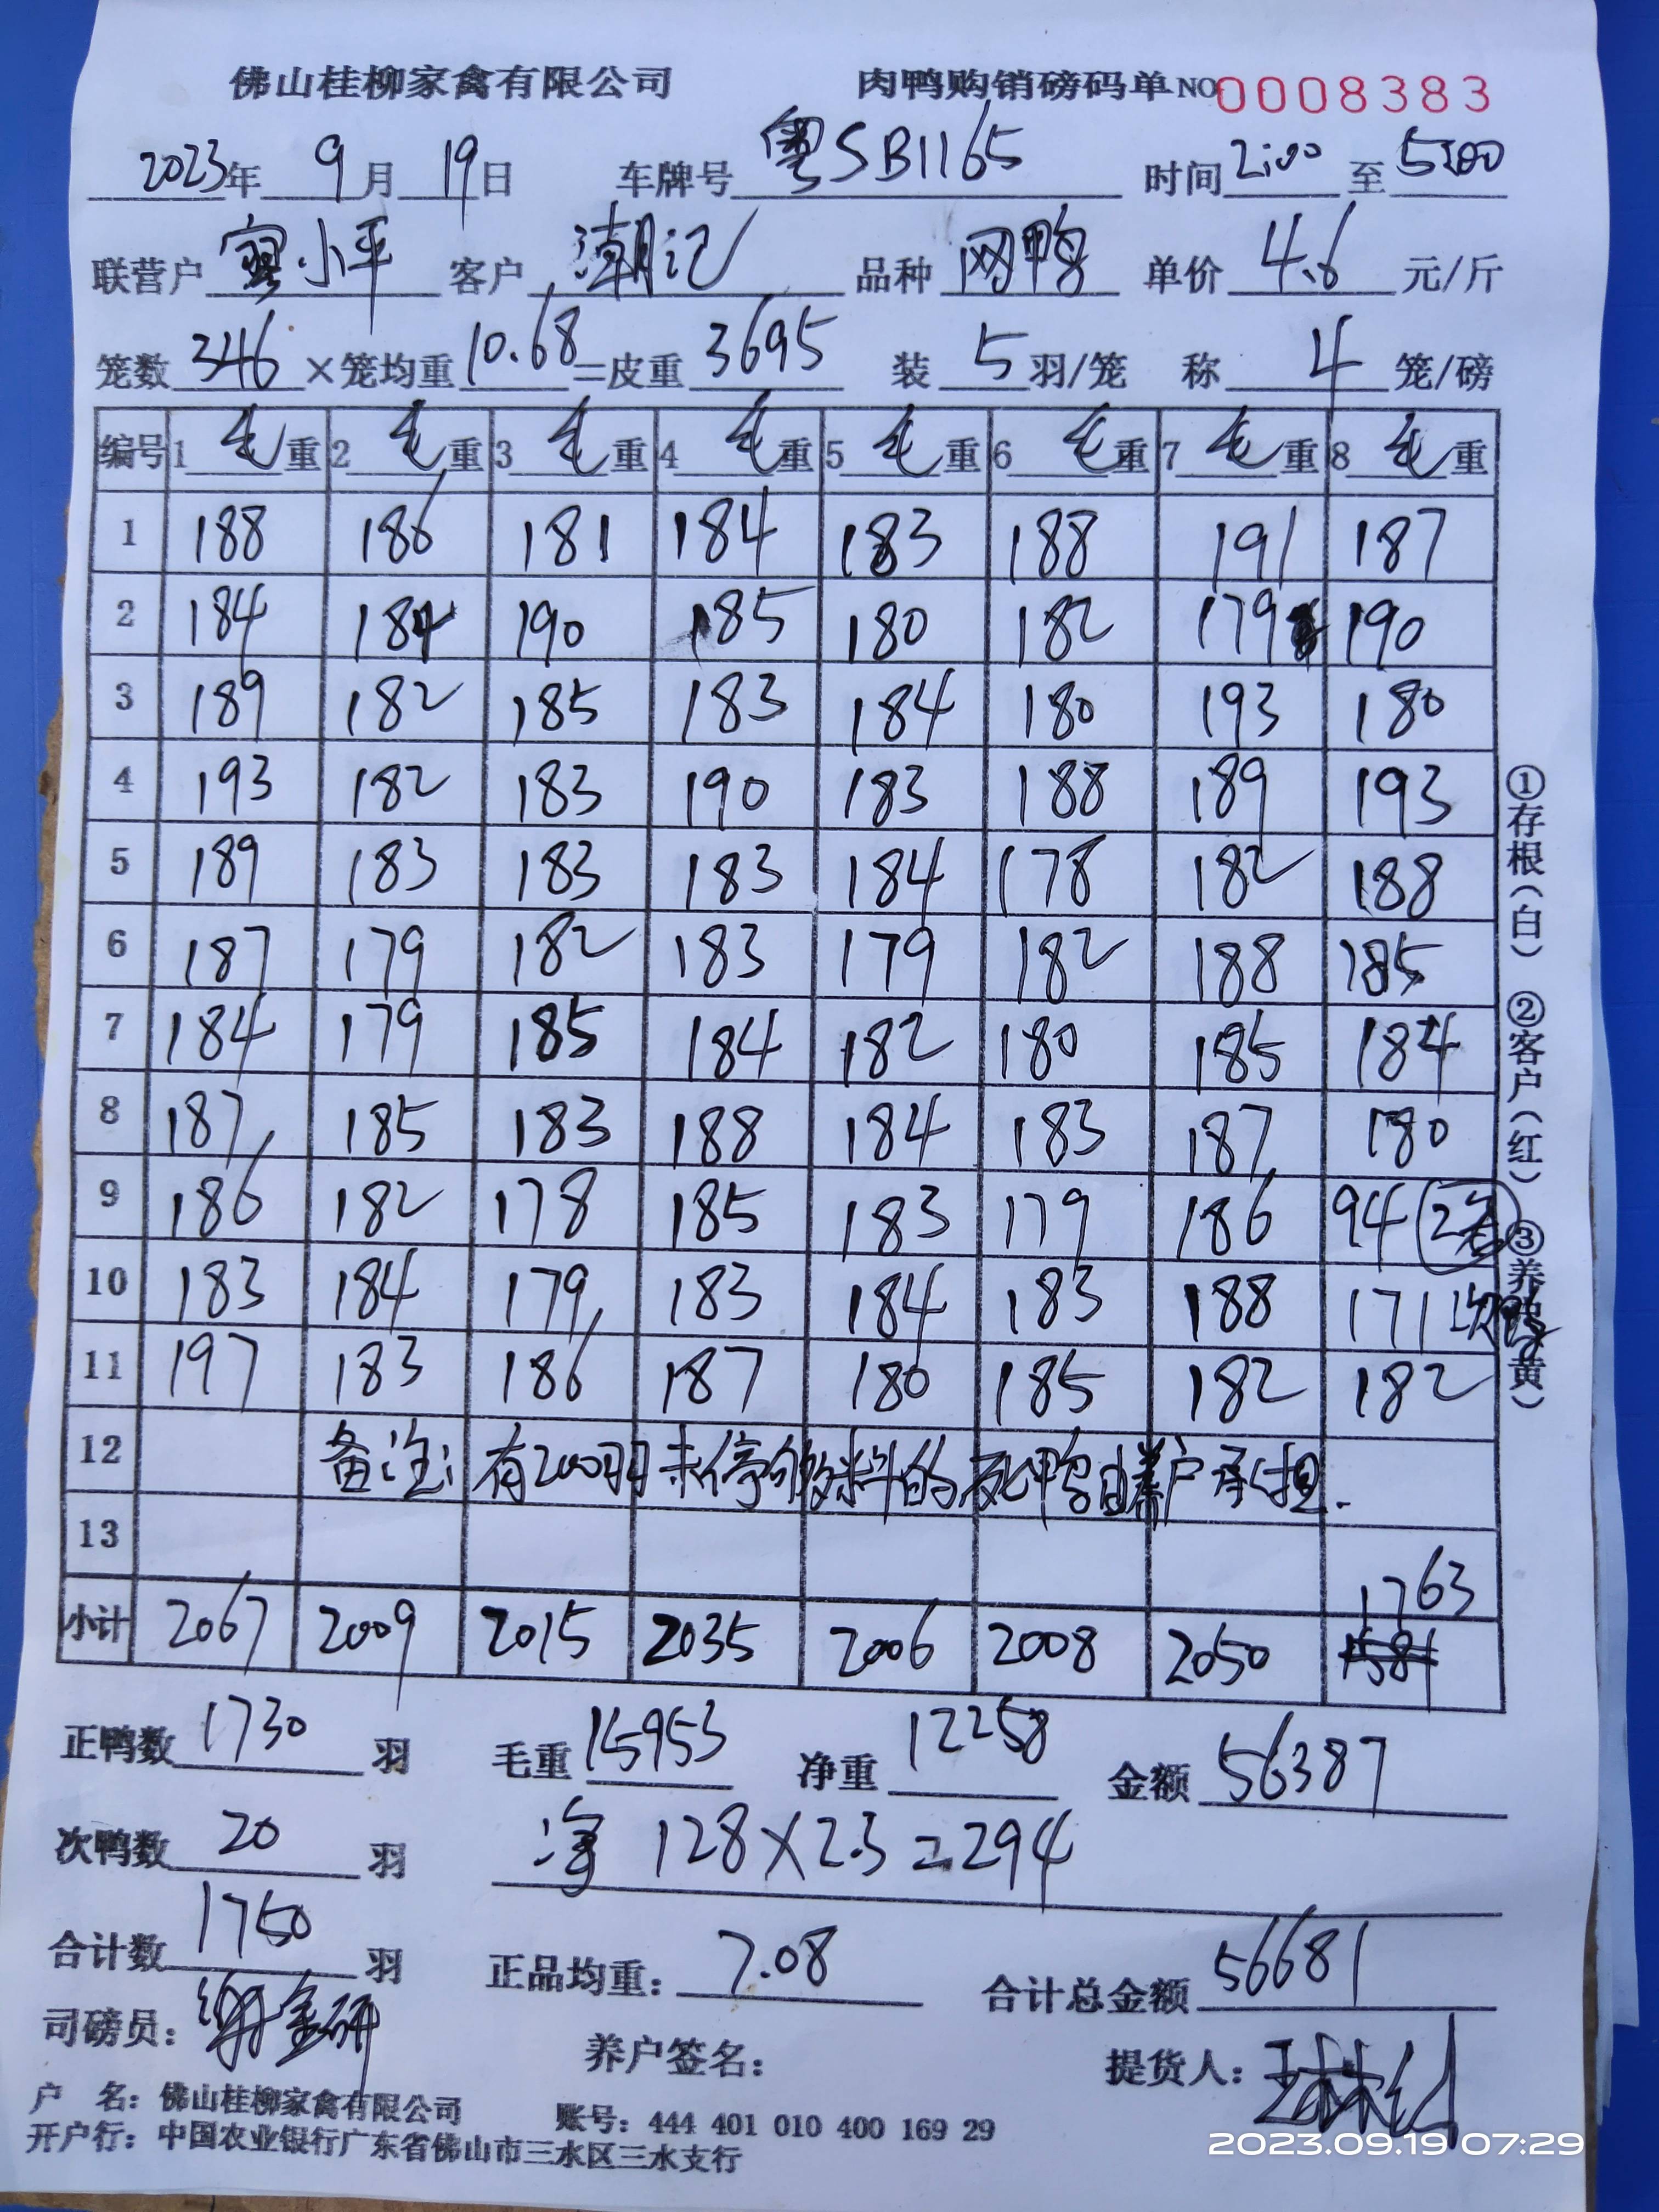 佛山桂柳家禽有限公司 肉鸭购销磅码单 NO 0008383
2023年 9月 19日 车牌号 粤SB1165 时间 2:00 至 5:00
联营户 小平 客户 潮记 品种 网鸭 单价 4.6 元/斤
笼数 346 ×笼均重 10.68 =皮重 3695 装 5 羽/笼 称 4 笼/磅
编号 1 毛 重 2 毛 重 3 毛 重 4 毛 重 5 毛 重 6 毛 重 7 毛 重 8 毛 重
1 188 186 181 184 183 188 191 187
2 184 184 190 185 180 182 179 190
3 189 182 185 183 184 180 193 180
4 193 182 183 190 183 188 189 193
5 189 183 183 183 184 178 182 188
6 187 179 182 183 179 182 188 185
7 184 179 185 184 182 180 185 184
8 187 185 183 188 184 183 187 180
9 186 182 178 185 183 179 186 94 (2笼)
10 183 184 179 183 184 183 188 171 次鸭
11 197 183 186 187 180 185 182 182
12 备注: 有200羽未停够料的死鸭由养户承担.
13
1763
小计 2067 2009 2015 2035 2006 2008 2050 1581
正鸭数 1730 羽 毛重 15953 净重 12258 金额 56387
次鸭数 20 羽 净 128×2.3=294
合计数 1750 羽 正品均重: 7.08 合计总金额 56681
司磅员: 谢金研 养户签名: 提货人: 王林
户 名: 佛山桂柳家禽有限公司 账号: 444 401 010 400 169 29
开户行: 中国农业银行广东省佛山市三水区三水支行
①存根(白) ②客户(红) ③养户(黄)
2023.09.19 07:29